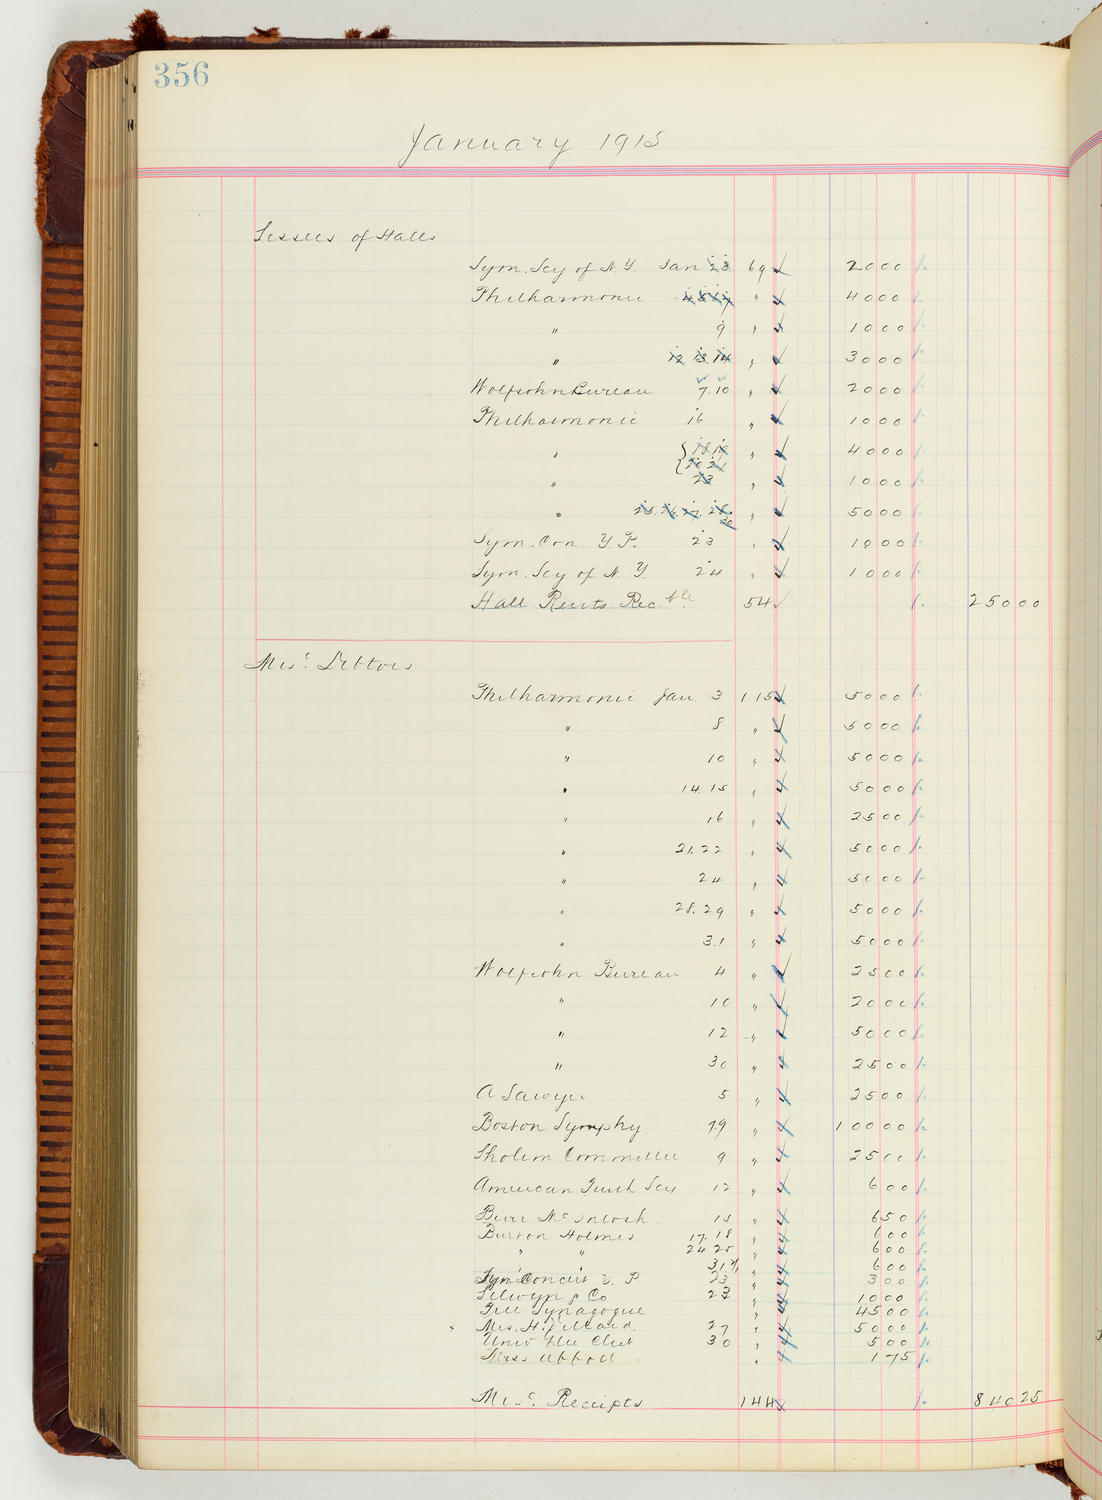 356
January 1915
Lessees of Halls
Sym. Scy of N.Y. Jan 23 69 2000
Philharmonic " 4000
" 9 " 1000
" 12 13 14 " 3000
Wolfsohn Bureau 7.10 " 2000
Philharmonic 16 " 1000
" 18 19 20 21 " 4000
" 23 " 1000
" 25. 26. 27. 28. 30 " 5000
Sym. Con. Y.P. 23 " 1000
Sym. Scy of N.Y. 24 " 1000
Hall Rents Rec ble 54 25000
Misc. Debtors
Philharmonic Jan 3 115 5000
" 8 " 5000
" 10 " 5000
" 14.15 " 5000
" 16 " 2500
" 21.22 " 5000
" 24 " 5000
" 28.29 " 5000
" 31 " 5000
Wolfsohn Bureau 4 " 2500
" 10 " 2000
" 12 " 5000
" 30 " 2500
A Sawyer 5 " 2500
Boston Symphy 7.9 " 10000
Sholem Committee 9 " 2500
American Scy 12 " 600
Burr McIntosh 15 " 650
Burton Holmes 17.18 " 600
" " 24 25 " 600
31 " 600
Sym Concert Y. P 23 " 300
Selwyn & Co " 1000
Free Synagogue " 4500
Mrs. H. 27 " 5000
Univ Glee Club 30 " 500
Miss Abbod " 175
Misc. Receipts 144 84025